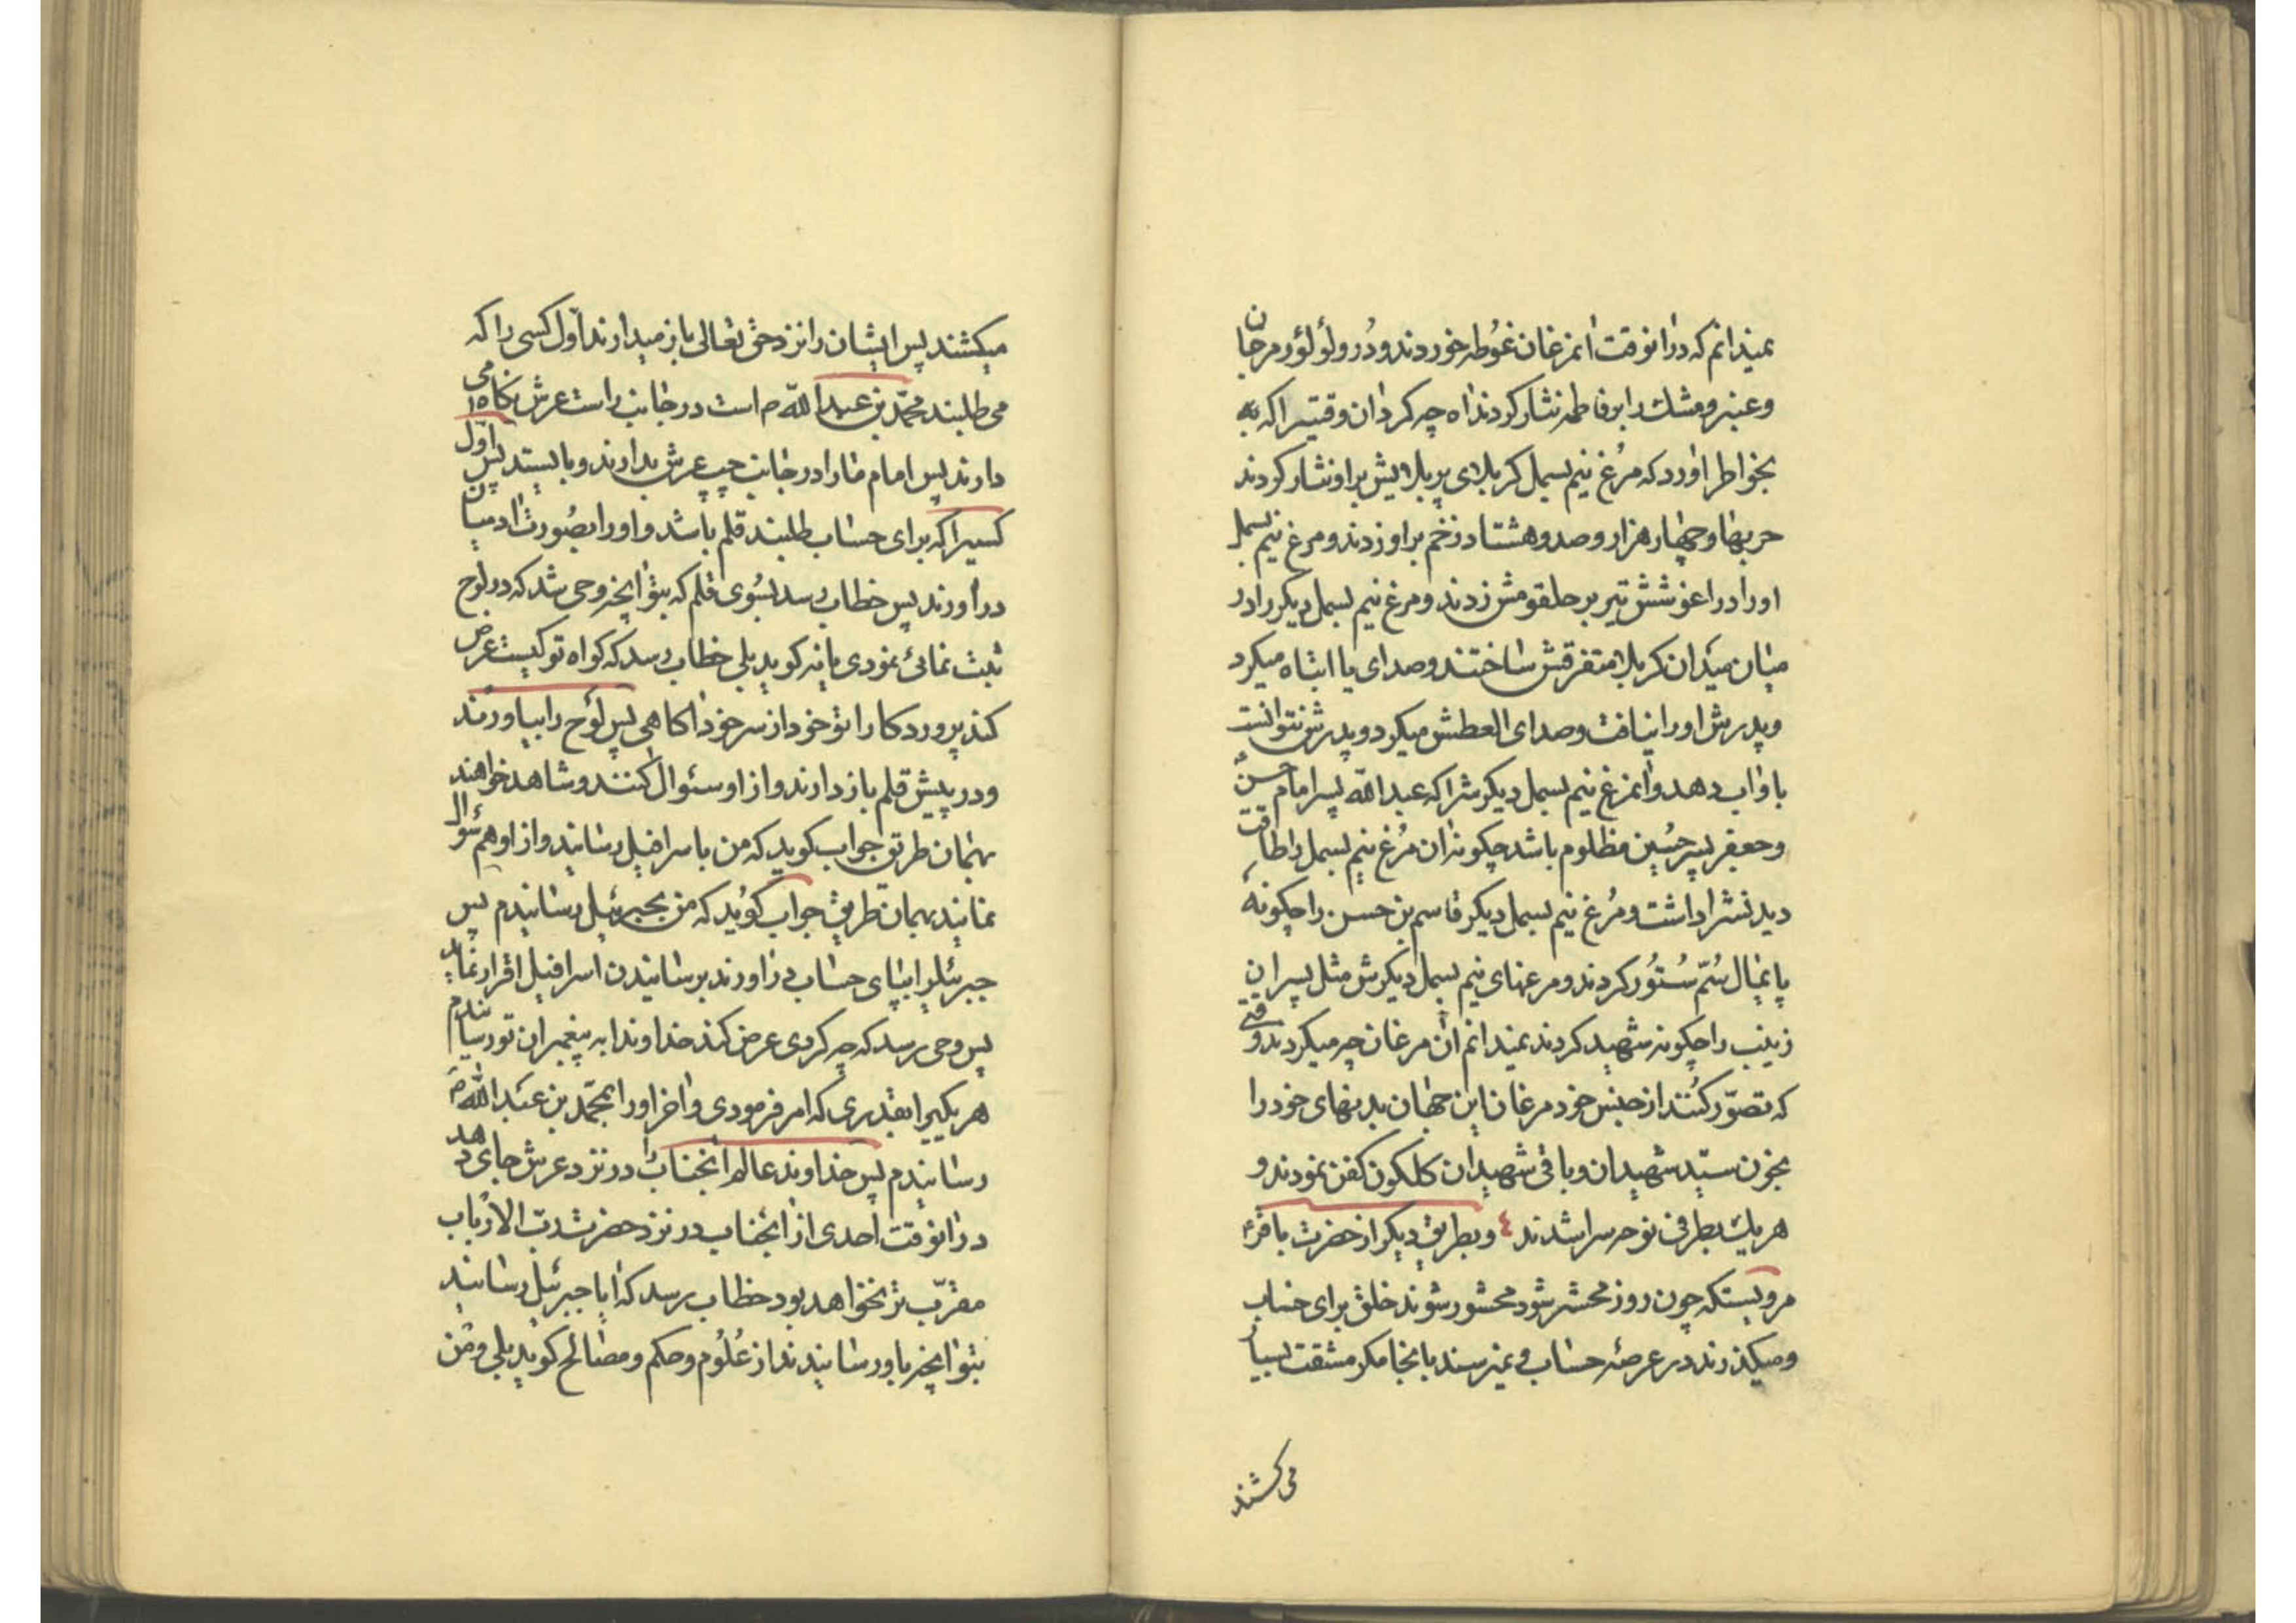 نمیدانم که درانوقت انمرغان غوُطه خوردند و دُر ولؤلؤ و مرجان
وعنبر و مشك را بر فاطمه نثار کردند اه چه کرد ان وقتیرا که به
بخواطر اورد که مرُغ نیم بسمل کربلای پر بلایش بر او نثار کردند
حربها و چهار هزار و صد و هشتاد زخم بر او زدند و مرغ نیم بسمل
او را در اغوشش تیر بر حلقومش زدند و مرغ نیم بسمل دیکر را در
میان میدان کربلا متفرقش ساختند و صدای یا ابتاه میکرد
و پدرش او را نیافت و صدای العطش میکرد و پدرش نتوانست
باو اب دهد و انمرغ نیم بسمل دیکرش را که عبد الله پسر امام حسن
و جعفر پسر حسُین مظلوم باشد چکونه ان مرُغ نیم بسمل را طاقت
دیدنش را داشت و مرُغ نیم بسمل دیکر قاسم بن حسن را چکونهٔ
پایمال سُمّ سُتوُر کردند و مرغهای نیم بسمل دیکرش مثل پسران
زینب را چکونه شهید کردند نمیدانم آن مرغان چه میکردند وقتی
که تصوّر کنُند از جنس خود مرغان این جهان بدنهای خود را
بخون سیّد شهیدان و باقی شهیدان کلکون کفن نمودند و
هریك بطرفی نوحه سرا شدند ٤ و بطریق دیکر از حضرت باقرؑ
مرویستکه چون روز محشر شود محشور شوند خلق برای حساب
و میکذرند در عرصهٔ حساب و نمیرسند بانجا مکر مشقت بسیار
می کشند
میکشند پس ایشان را نزد حق تعالی باز میدارند اوّل کسی را که
می طلبند محمّد بن عبد الله ص است در جانب راست عرش نکاه می
دارند پس امام ما را در جانب چپ عرش بدارند و بایستد پس اوّل
کسیرا که برای حساب طلبند قلم باشد و او را بصُورت ادمیان
در آورند پس خطاب رسد بسُوی قلم که بتو انچه وحی شد که در لوح
ثبت نمائی نمودی یا نه کوید بلی خطاب رسد که کواه تو کیست عرض
کند پروردکارا تو خود از سر خود اکاهی پس لوح را بیاورند
و در پیش قلم باز دارند و از او سئوال کنند و شاهد خواهند
بهمان طریق جواب کوید که من باسرافیل رسانید و از او هم سئوال
نمایند بهمان طریق جواب کوُید که من بجبرئیل رسانیدم پس
جبرئیل را بپای حساب در اورند برسانیدن اسرافیل اقرار نماید
پس وحی رسد که چه کردی عرض کند خداوندا به پیغمبران تو رسانیدم
هر یکیرا بقدری که امر فرمودی و اخر او را بمحمّد بن عبد الله ص
رسانیدم پس خداوند عالم انجناب را در نزد عرش جای دهد
در انوقت احدی از انجناب در نزد حضرت ربّ الارباب
مقرّب تر نخواهد بود خطاب رسد که ایا جبرئیل رسانید
بتو انچه باو رسانیدند از علُوُم و حکم و مصالح کوید بلی و من